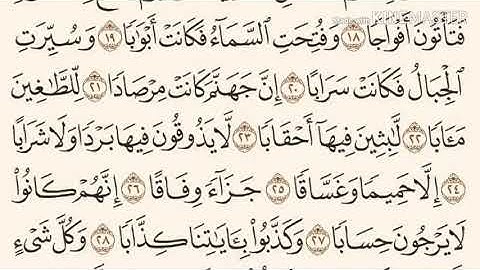 فَتَأْتُونَ أَفْوَاجًا ١٨ وَفُتِحَتِ ٱلسَّمَآءُ فَكَانَتْ أَبْوَٰبًا ١٩ وَسُيِّرَتِ
ٱلْجِبَالُ فَكَانَتْ سَرَابًا ٢٠ إِنَّ جَهَنَّمَ كَانَتْ مِرْصَادًا ٢١ لِّلطَّٰغِينَ
مَـَٔابًا ٢٢ لَّٰبِثِينَ فِيهَآ أَحْقَابًا ٢٣ لَّا يَذُوقُونَ فِيهَا بَرْدًا وَلَا شَرَابًا
٢٤ إِلَّا حَمِيمًا وَغَسَّاقًا ٢٥ جَزَآءً وِفَاقًا ٢٦ إِنَّهُمْ كَانُوا۟
لَا يَرْجُونَ حِسَابًا ٢٧ وَكَذَّبُوا۟ بِـَٔايَٰتِنَا كِذَّابًا ٢٨ وَكُلَّ شَىْءٍ
KINEMASTER